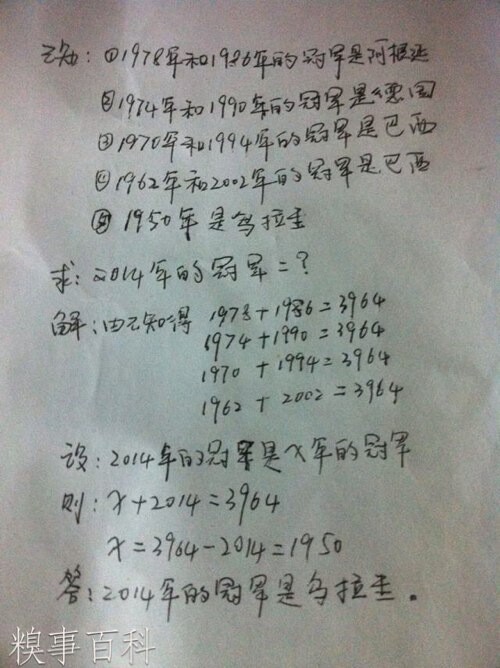 已知：①1978年和1986年的冠军是阿根廷
②1974年和1990年的冠军是德国
③1970年和1994年的冠军是巴西
④1962年和2002年的冠军是巴西
⑤1950年是乌拉圭
求：2014年的冠军=?
解：由已知得 1978+1986=3964
1974+1990=3964
1970+1994=3964
1962+2002=3964
设：2014年的冠军是x年的冠军
则：x+2014=3964
x=3964-2014=1950
答：2014年的冠军是乌拉圭。
糗事百科